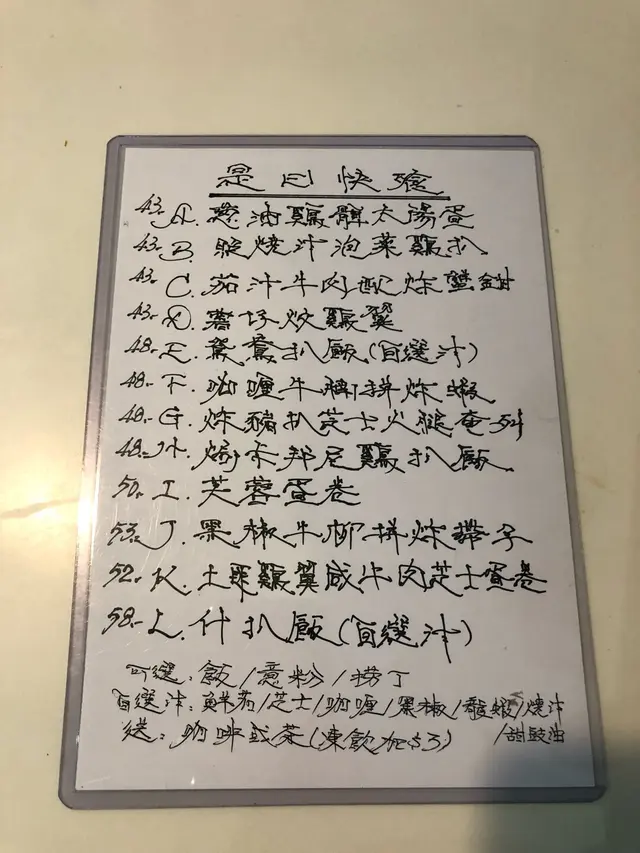 是日快餐
43. A. 葱油雞髀太陽蛋
43. B. 照燒汁泡菜雞扒
43. C. 茄汁牛肉配炸蟹鉗
43. D. 雞翼
48. E. 鴛鴦扒飯(自選汁)
48. F. 咖喱牛拼炸蝦
48. G. 炸豬扒芝士火腿奄列
48. H. 焗卡邦尼雞扒飯
50. I. 芙蓉蛋卷
53. J. 黑椒牛柳拼炸帶子
52. K. 雞翼咸牛肉芝士蛋卷
58. L. 什扒飯(自選汁)
可選:飯/意粉/撈丁
自選汁:鮮茄/芝士/咖喱/黑椒//燒汁
/甜豉油
送:咖啡或茶(凍飲加$3)